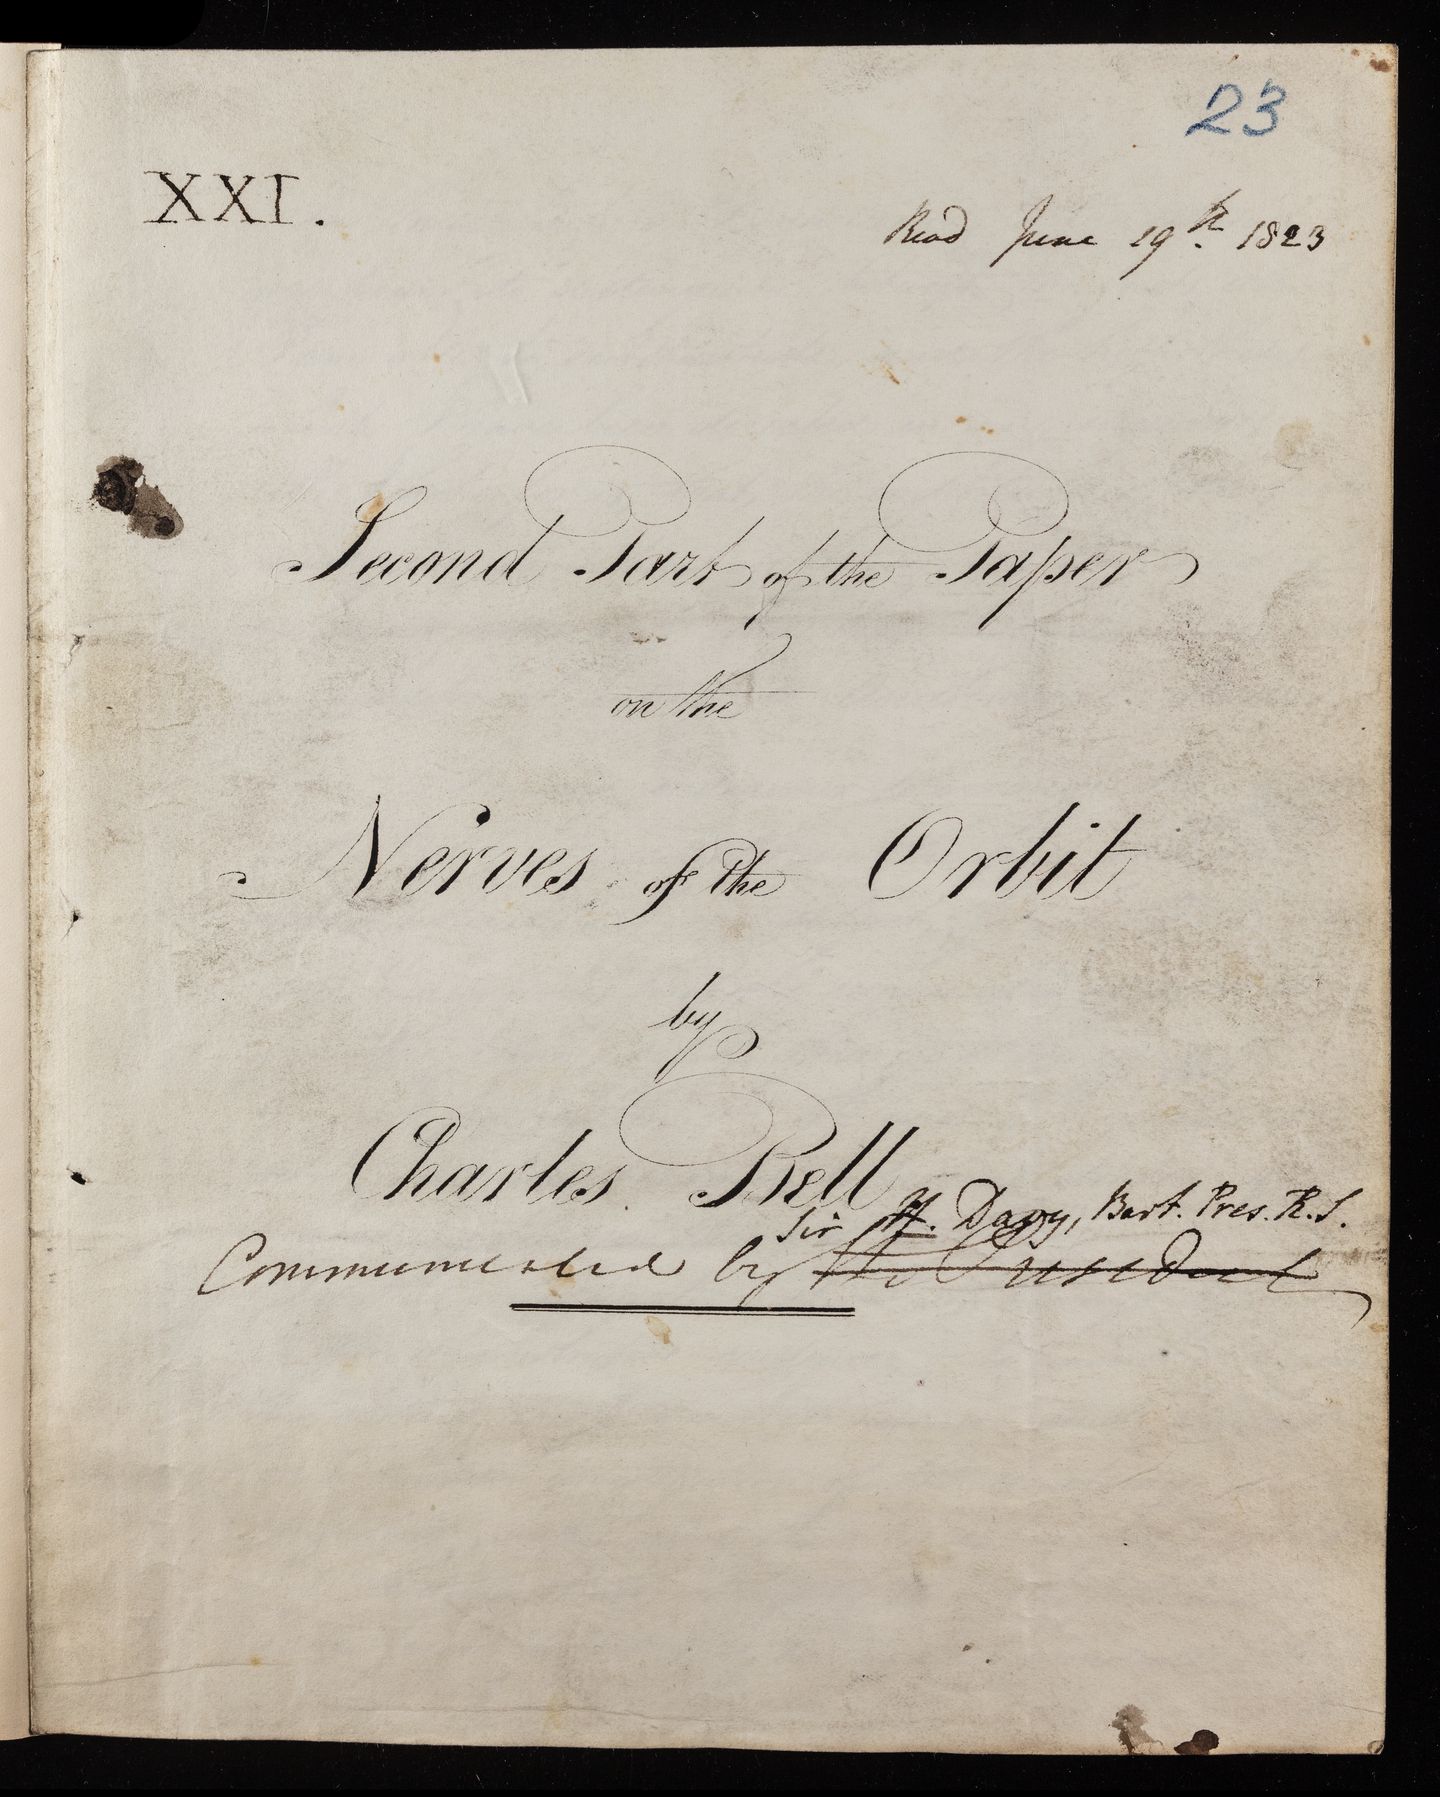 23
XXI.
Read June 19th. 1823
Second Part of the Paper
on the
Nerves of the Orbit
by
Charles Bell
Sir H. Davy, Bart. Pres. R.S.
Communicated by the President